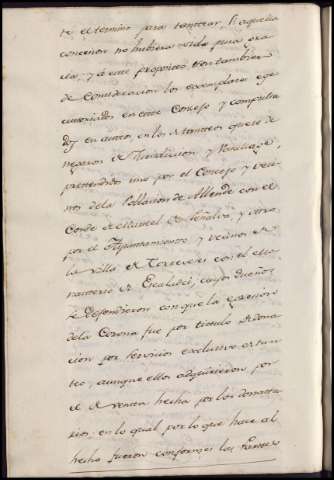 te el termino para tantear si aquella
concesion no hubiera sido pura gra
cia, y á este proposito son tambien
de consideracion los exemplares exe
cutoriados en este Consejo y compulsa
dos en autos, en los de tanteos que se de
negaron de Jurisdiccion, y Vasallage,
pretendidos uno por el Concejo y veci
nos de la Poblacion de Allende con el
Conde de Peñalva, y otro
por el Ayuntamiento y vecinos de
la villa de con el Mo
nasterio de cuyos dueños
se defendieron con que la egresion
de la Corona fue por titulo de dona
cion por servicios exclusivo de tan
teo, aunque ellos adquirieron por
el de venta hecha por los donata
rios, en lo qual por lo que hace al
hecho fueron conformes las Partes